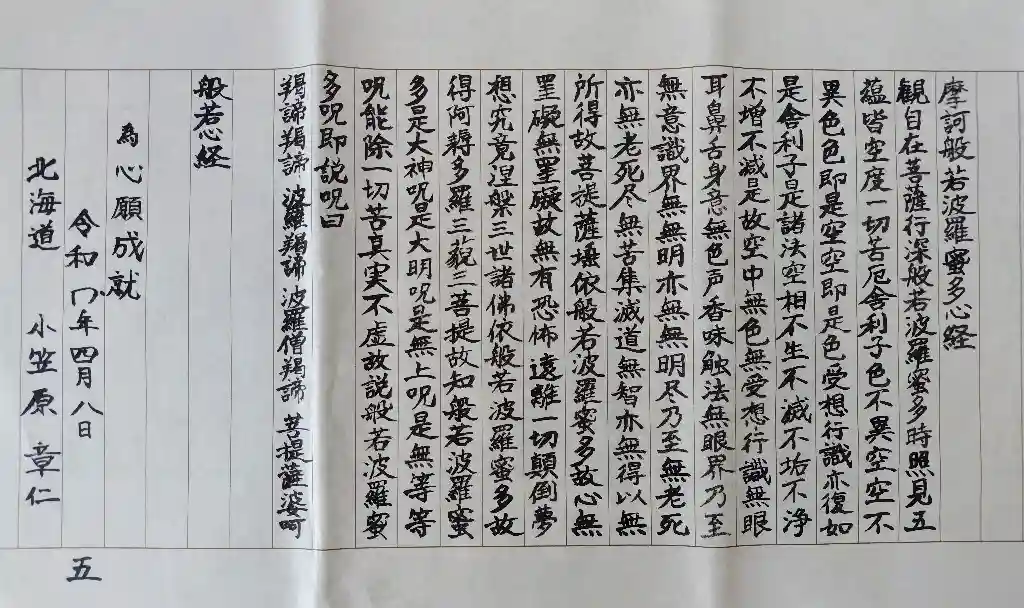 摩訶般若波羅蜜多心経
観自在菩薩行深般若波羅蜜多時照見五
蘊皆空度一切苦厄舎利子色不異空空不
異色色即是空空即是色受想行識亦復如
是舎利子是諸法空相不生不滅不垢不浄
不増不減是故空中無色無受想行識無眼
耳鼻舌身意無色声香味触法無眼界乃至
無意識界無無明亦無無明尽乃至無老死
亦無老死尽無苦集滅道無智亦無得以無
所得故菩提薩埵依般若波羅蜜多故心無
罣礙無罣礙故無有恐怖遠離一切顛倒夢
想究竟涅槃三世諸佛依般若波羅蜜多故
得阿耨多羅三藐三菩提故知般若波羅蜜
多是大神呪是大明呪是無上呪是無等等
呪能除一切苦真実不虚故説般若波羅蜜
多呪即説呪曰
羯諦羯諦 波羅羯諦 波羅僧羯諦 菩提薩婆呵
般若心経
為心願成就
令和年四月八日
北海道 小笠原 章仁
五